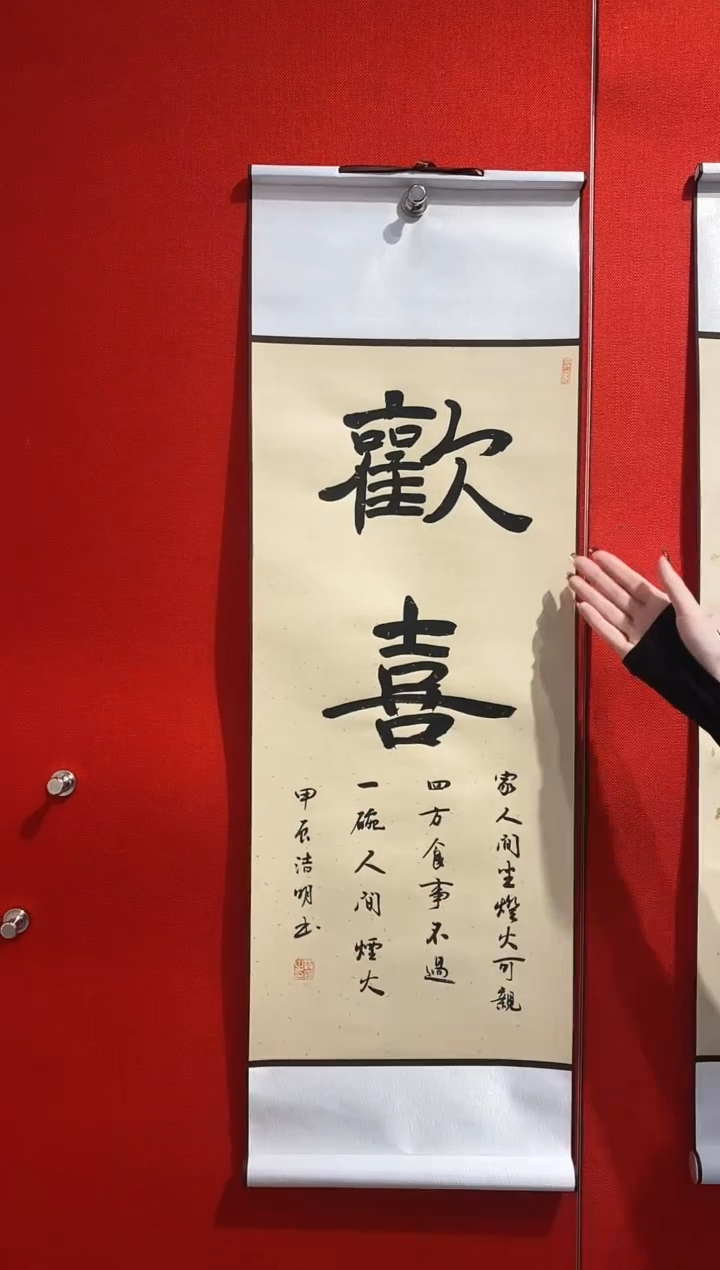 歡喜
家人间坐燈火可親
四方食事不過
一碗人间煙火
甲辰洁明书